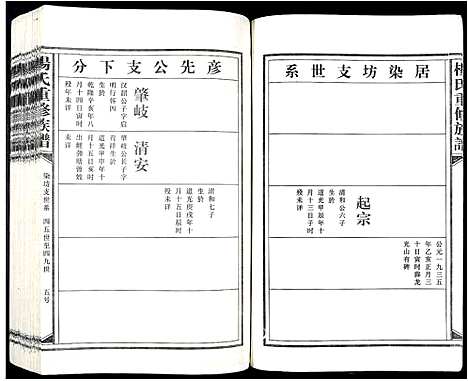 楊氏重修族譜
居染坊支世系
公元一九三五
年乙亥正月三
十日寅時葬龙
光山有碑
起宗
清和公六子
生於
道光甲辰年十
月十三日子时
殁未详
彦先公支下分
肇岐
汉韶公子字启
明行四
生於
乾隆辛亥年八
月十四日寅时
殁年未详
清安
肇岐公長子字
生於
道光甲申年十
月
清和七子
生於
道光庚戌年十
月十五日辰时
殁未详
楊氏重修族譜
染坊支世系
四五世至四九世
五号